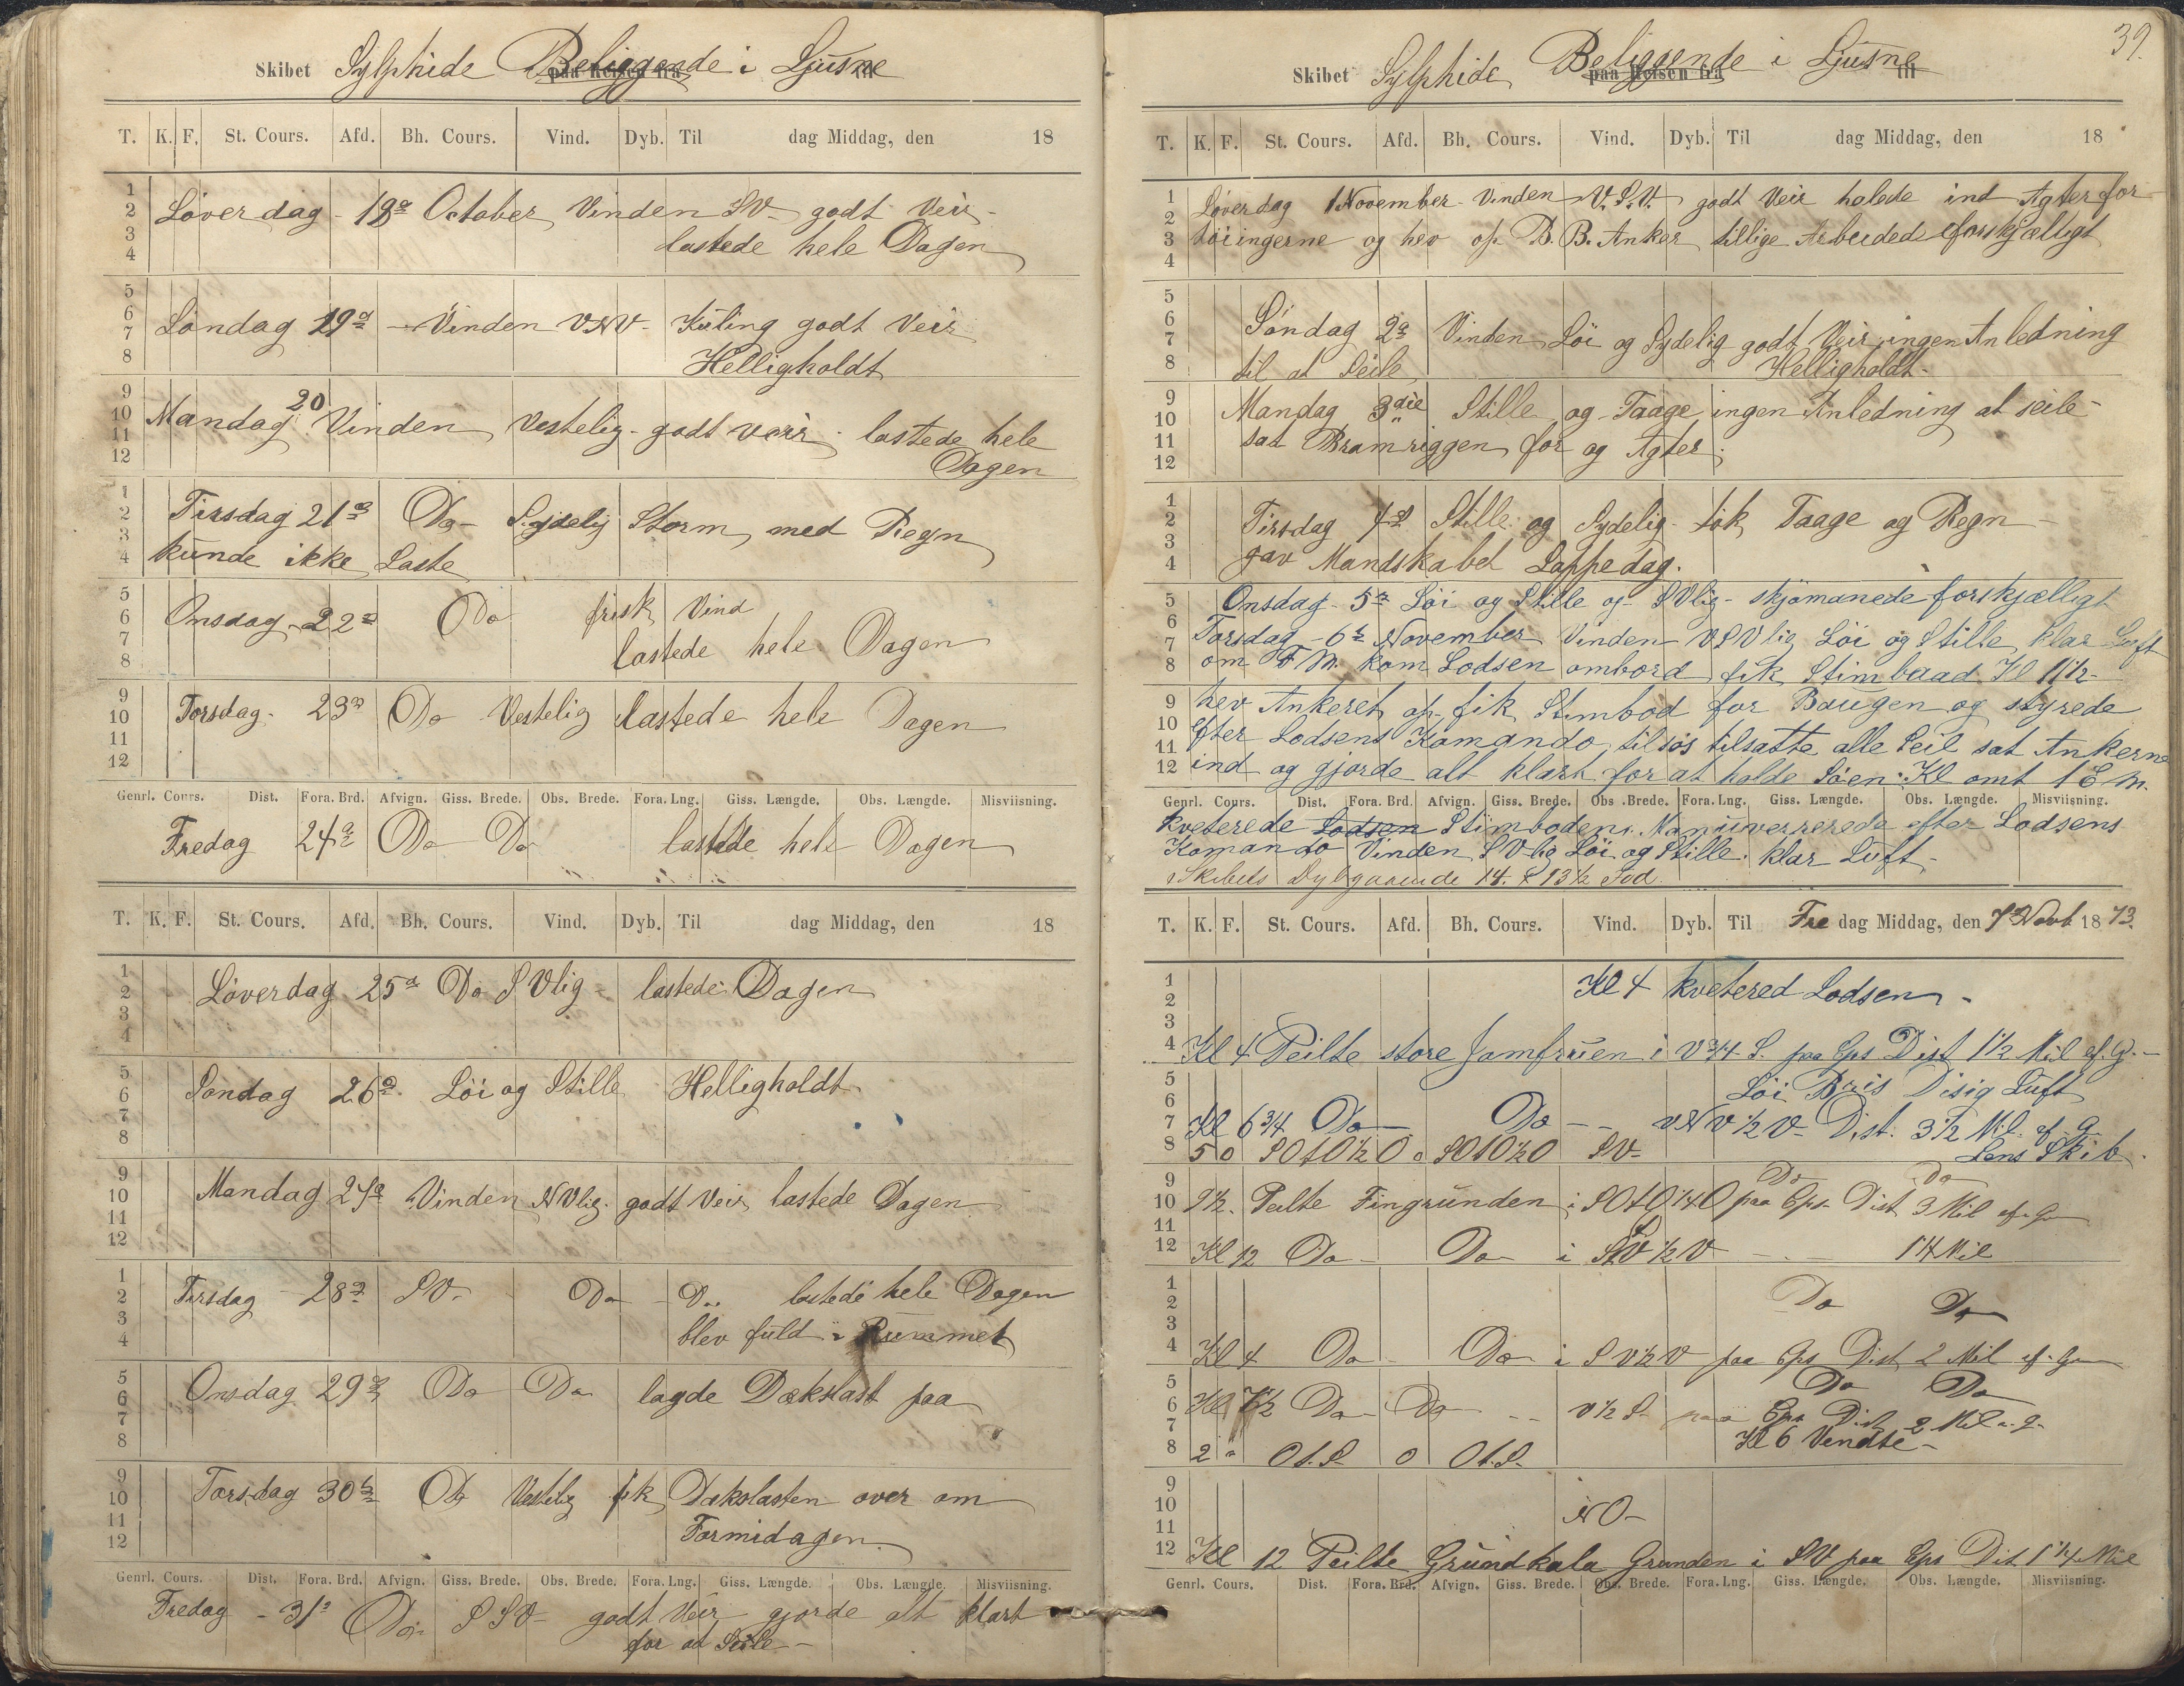 Skibet Sylphide Beliggende i Ljusne
paa Reisen fra til
T. K. F. St. Cours. Afd. Bh. Cours. Vind. Dyb. Til dag Middag, den 18
1
2
3
4
Løverdag 18de October Vinden SV godt Veir
lastede hele Dagen
5
6
7
8
Søndag 19de Vinden VNV Kuling godt Veir
Helligholdt
9
10
11
12
Mandag 20 Vinden Vestelig godt veir lastede hele
Dagen
1
2
3
4
Tirsdag 21de Do Sydelig Storm, med Regn
kunde ikke Laste
5
6
7
8
Onsdag 22de Do frisk Vind
lastede hele Dagen
9
10
11
12
Torsdag 23de Do Vestelig lastede hele Dagen
Genrl. Cours. Dist. Fora. Brd. Afvign. Giss. Brede. Obs. Brede. Fora. Lng. Giss. Længde. Obs. Længde. Misviisning.
Fredag 24de Do Do lastede hele Dagen
T. K. F. St. Cours. Afd. Bh. Cours. Vind. Dyb. Til dag Middag, den 18
1
2
3
4
Løverdag 25de Do SVlig lastede Dagen
5
6
7
8
Søndag 26de Løi og Stille Helligholdt
9
10
11
12
Mandag 27de Vinden NVlig godt Veir lastede Dagen
1
2
3
4
Tirsdag 28de SV Do Do lastede hele Dagen
blev fuld i Rummet
5
6
7
8
Onsdag 29de Do Do lagde Dækslast paa
9
10
11
12
Torsdag 30te Do Vestelig fik Dækslasten over om
Formidagen
Genrl. Cours. Dist. Fora. Brd. Afvign. Giss. Brede. Obs. Brede. Fora. Lng. Giss. Længde. Obs. Længde. Misviisning.
Fredag 31 Do SSV godt Veir gjorde alt klart
for at Seile
39.
Skibet Sylphide Beliggende i Ljusne
paa Reisen fra til
T. K. F. St. Cours. Afd. Bh. Cours. Vind. Dyb. Til dag Middag, den 18
1
2
3
4
Løverdag 1 November Vinden V.S.V. godt Veir halede ind Agterfor-
tøiingerne og hev op B.B. Anker tillige Arbeidede forskjælligt
5
6
7
8
Søndag 2de Vinden Løi og Sydelig godt Veir ingen Anledning
til at Seile Helligholdt
9
10
11
12
Mandag 3die Stille og Taage ingen Anledning at seile
sat Bramriggen for og Agter
1
2
3
4
Tirsdag 4de Stille og Sydelig tøk Taage og Regn
gav Mandskabet Lappedag.
5
6
7
8
Onsdag 5te Løi og Stille og SVlig skjømanede forskjælligt
Torsdag 6te November Vinden VSVlig Løi og Stille klar Luft
om FM. kom Lodsen ombord fik Stimbaad Kl 11½
9
10
11
12
hev Ankeret op fik Stimbod for Baugen og styrede
efter Lodsens Komando tilsøs tilsatte alle Seil sat Ankerne
ind og gjorde alt klart for at holde Søen. Kl omt 1 E M.
Genrl. Cours. Dist. Fora. Brd. Afvign. Giss. Brede. Obs. Brede. Fora. Lng. Giss. Længde. Obs. Længde. Misviisning.
kveterede Lodsen Stimboden. Manuverrerede efter Lodsens
Komando Vinden SVlig Løi og Stille. klar Luft
Skibets Dybgaaende 14. & 13½ Fod
T. K. F. St. Cours. Afd. Bh. Cours. Vind. Dyb. Til Fredag Middag, den 7de Novb 1873.
1
2
3
4
Kl 4 kvetered Lodsen
Kl 4 Peilte store Jomfruen i V¾ S. paa Cps Dist 1½ Mil af. G.
5
6
7
8
Løi Bris Disig Luft
Kl 6¾ Do Do VNV½V Dist. 3½ Mil af G.
5 0 SOtO½O 0 SOtO½O SV Lens Skib.
9
10
11
12
Do Do
9½ Peilte Fingrunden i SOtO¼O paa Cps. Dist 3 Mil af G
Kl 12 Do Do i SV½V 1¼ Mil
1
2
3
4
Do Do
Kl 4 Do Do i SV½V paa Cps Dist 2 Mil af G
5
6
7
8
Do Do
Kl 7½ Do Do V½S paa Cps Dist 2 Mil a. G.
Kl 6 Vendte
2 " Ot.S. 0 Ot.S.
9
10
11
12
NO
Kl 12 Peilte Grundkala Grunden i SV paa Cps Dist 1¼ Mil
Genrl. Cours. Dist. Fora. Brd. Afvign. Giss. Brede. Obs. Brede. Fora. Lng. Giss. Længde. Obs. Længde. Misviisning.